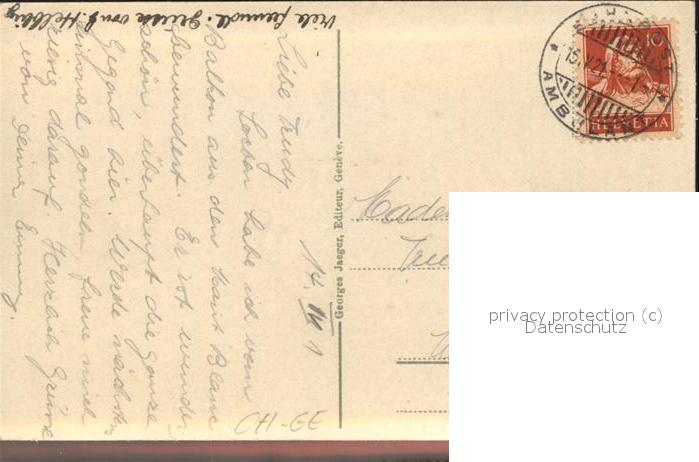 Viele freundl. Grüsse von J. Helbling
14. IV 1
Liebe Trudy
Soeben habe ich vom
Balkon aus den Mont Blanc
bewundert. Er ist wunder
schön, überhaupt die ganze
Gegend hier. Werde nächstens
einmal gondeln freue mich
riesig darauf. Herzlich Grüsse
von Deiner Emmy.
Georges Jaeger, Editeur, Genève.
BAHNPOST
AMBULANT
10
HELVETIA
CH-GE
privacy protection (c)
Datenschutz